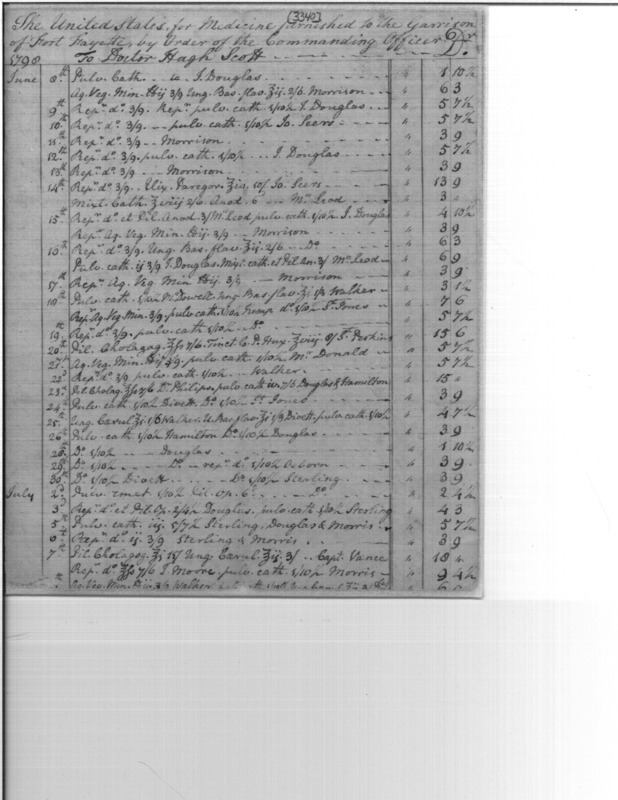 [3340]
The United States, for Medicine furnished to the Garrison
of Fort Fayette, by Order of the Commanding Officer Dr.
1798 To Doctor Hugh Scott
June 8th Pulv. Cath. .. ія. J. Douglas " 1 10½
Aq. Veg. Min. ℔ij 3/9 Ung. Bas. flav. ℥ij. 2/6. Morrison " 6 3
9th Rep.d do. 3/9. Rep.d pulv. cath 1/10½ J. Douglas " 5 7½
10th Rep.d do. 3/9. pulv. cath. 1/10½ Jo. Seers " 5 7½
11th Rep.d do. 3/9 Morrison " 3 9
12th Rep.d do. 3/9. pulv. cath. 1/10½ J. Douglas " 5 7½
13th Rep.d do. 3/9 Morrison " 3 9
14th Rep.d do. 3/9. Elix. Paregor. 10/ Jo. Seers " 13 9
Mixt. Cath. 2/6. Anod. 6 McLeod " 3 "
15th Rep.d do. et Pil. Anod. 3/ McLeod pulv. cath 1/10½ J. Douglas " 4 10½
Rep. Aq. Veg. Min. ℔ij. 3/9 Morrison " 3 9
16th Rep.d do. 3/9. Ung. Bas. flav. ℥ij. 2/6 Do " 6 3
Pulv. cath. ij 3/9 J. Douglas. Mixt. cath. et Pil. An. 3/ McLeod " 6 9
17th Rep.d Aq. Veg. Min ℔ij. 3/9 Morrison " 3 9
18th Pulv. cath. 1/10½ Ung. Bas. flav. ℥i 1/3 Walker " 3 1½
Rep.d Aq. Veg. Min. 3/9. pulv. cath. 1/10½ do. 1/10½ St. Jones " 7 6
19th Rep.d do. 3/9. pulv. cath. 1/10½ Do " 5 7½
20th Pil. Cholagog. 7/6. Tinct 8/ St. Perkins " 15 6
21st Aq. Veg. Min. ℔ij 3/9. pulv. cath 1/10½ McDonald " 5 7½
22d Rep.d do 3/9 pulv. cath. 1/10½ Walker " 5 7½
23d Pil. Cholag. 7/6 Philips, pulv. cath 7/6 Douglas & Hamilton " 15 "
24th Pulv. cath 1/10½ Divett. Do. 1/10½ St. Jones " 3 9
25th Ung. Cerul. ℥i 1/6 Walker. U. Bas. flav. ℥i 1/3 Divett. pulv. cath. 1/10½ " 4 7½
26th Pulv. cath 1/10½ Hamilton Do. 1/10½ Douglas " 3 9
28th Do. 1/10½ Douglas " 1 10½
29th Do. 1/10½ Do. rep.d do. 1/10½ Osborn " 3 9
30th Do. 1/10½ Divett Do. 1/10½ Sterling " 3 9
July 2d Pulv. emet. 1/10½ Pil. Op. 6d. Do " 2 4½
3d Rep.d do. et Pil. Op. 2/4½ Douglas, pulv. cath 1/10½ Sterling " 4 3
5th Pulv. cath. iij. 5/7½ Sterling, Douglas & Morris " 5 7½
6th Rep.d do. ij. 3/9 Sterling & Morris " 3 9
7th Pil. Cholagog. ℥i 15/ Ung. Cerul. ℥ij 3/ Capt. Vance " 18 "
Rep.d do. 7/6 J. Moore, pulv. cath. 1/10½ Morris " 9 4½
Aq. Veg. Min. ℔ij. 3/9 Walker